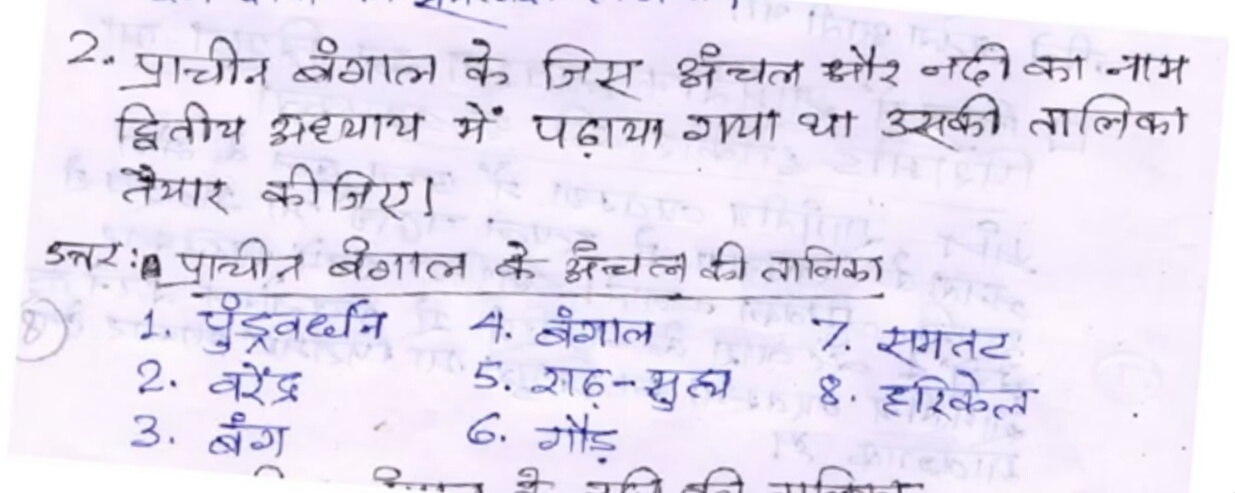 2. प्राचीन बंगाल के जिस अंचल और नदी का नाम
द्वितीय अध्याय में पढ़ाया गया था उसकी तालिका
तैयार कीजिए।
उत्तर: प्राचीन बंगाल के अंचल की तालिका
1. पुंड्रवर्धन 4. बंगाल 7. समतट
2. वरेंद्र 5. राढ़-सुह्म 8. हरिकेल
3. बंग 6. गौड़